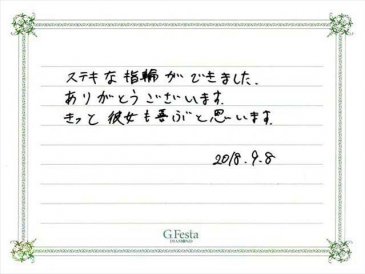 ステキな指輪ができました.
ありがとうございます.
きっと彼女も喜ぶと思います.
2018.9.8
G.Festa
DIAMOND